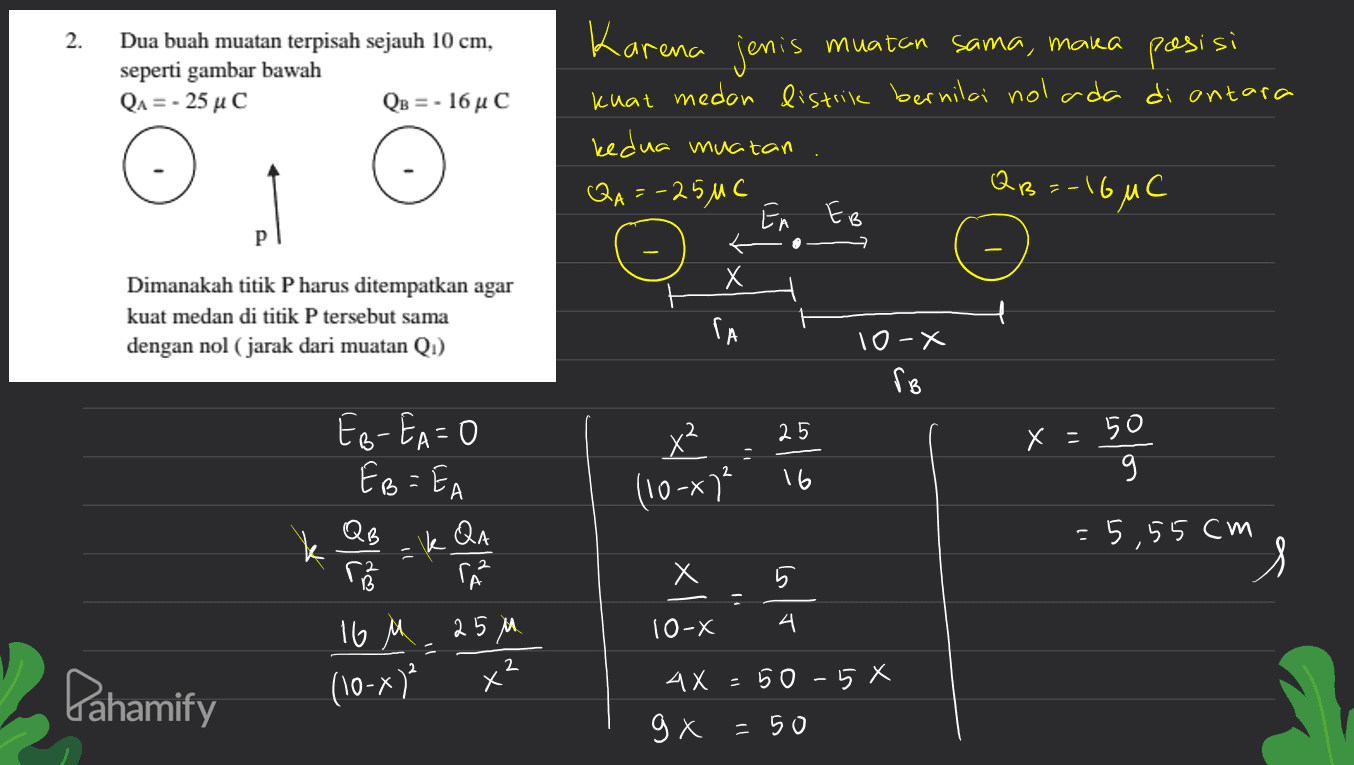 2. Dua buah muatan terpisah sejauh 10 cm,
seperti gambar bawah
QA = - 25 μ C QB = - 16 μ C
- -
P
Dimanakah titik P harus ditempatkan agar
kuat medan di titik P tersebut sama
dengan nol ( jarak dari muatan Q₁)
Karena jenis muatan sama, maka posisi
kuat medan listrik bernilai nol ada di antara
kedua muatan .
QA = -25 μC QB = -16 μC
EA EB
- -
x
rA
10 - x
rB
EB - EA = 0
EB = EA
k QB/rB² = k QA/rA²
16 μ/(10-x)² = 25 μ/x²
x²/(10-x)² = 25/16
x/10-x = 5/4
4x = 50 - 5x
9x = 50
x = 50/9
= 5,55 cm
Pahamify